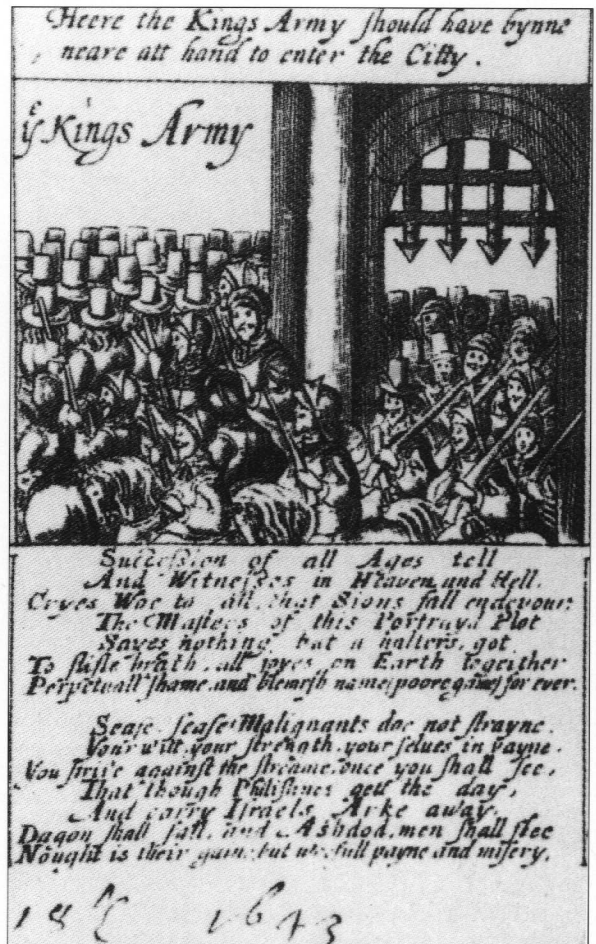 Heere the Kings Army should have bynne
neare att hand to enter the Citty.
yͤ Kings Army
Succession of all Ages tell
And Witnesses in Heaven and Hell.
Cryes Woe to all that Sions fall endevour:
The Masters of this Portrayd Plot
Saves nothing but a halters got
To stifle breath, all joyes on Earth together
Perpetuall shame, and blemish name (poore gaine) for ever.
Sease sease Malignants doe not strayne.
Your witt, your strength, your selues in vayne.
You strive against the streame, once you shall see,
That though Philistines gett the day,
And carry Israels Arke away,
Dagon shall fall, and Ashdod, men shall flee
Nought is their gain, but wofull payne and misery.
1643